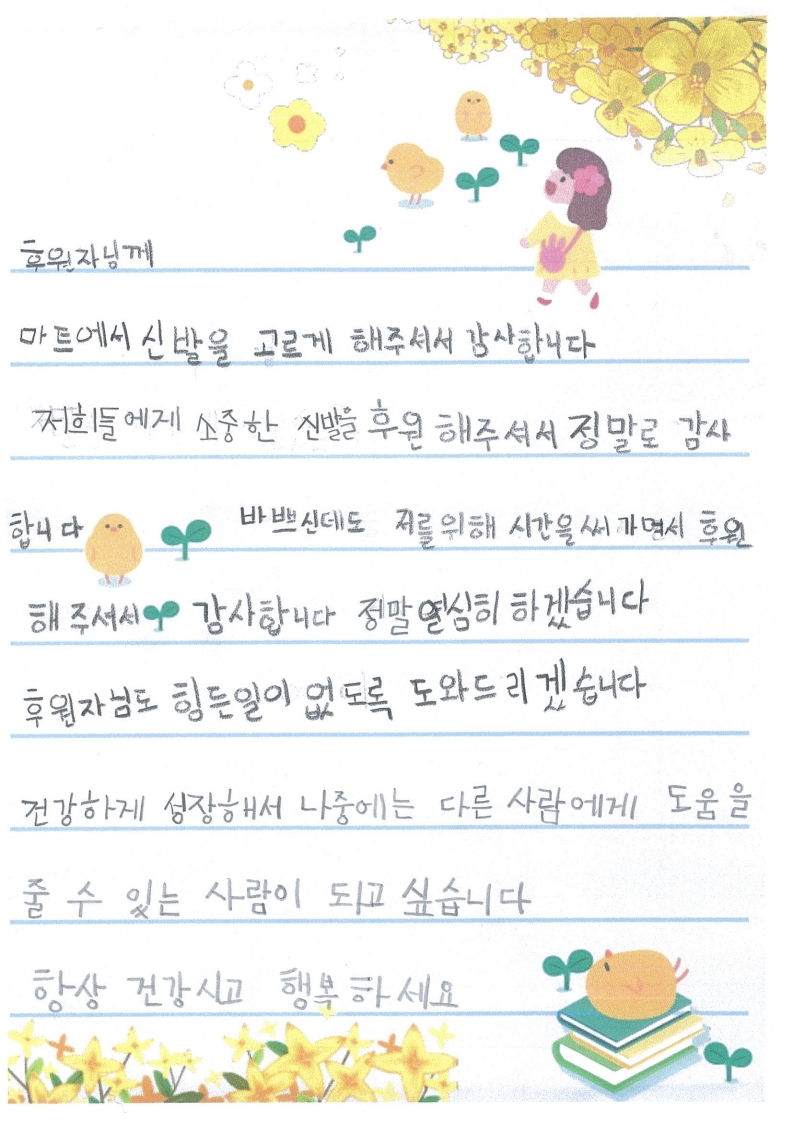 후원자님께
마트에서 신발을 고르게 해주셔서 감사합니다
저희들에게 소중한 신발을 후원 해주셔서 정말로 감사
합니다 바쁘신데도 저를위해 시간을 써 가면서 후원
해 주셔서 감사합니다 정말 열심히 하겠습니다
후원자님도 힘든일이 없도록 도와드리겠습니다
건강하게 성장해서 나중에는 다른 사람에게 도움을
줄 수 있는 사람이 되고 싶습니다
항상 건강시고 행복 하세요